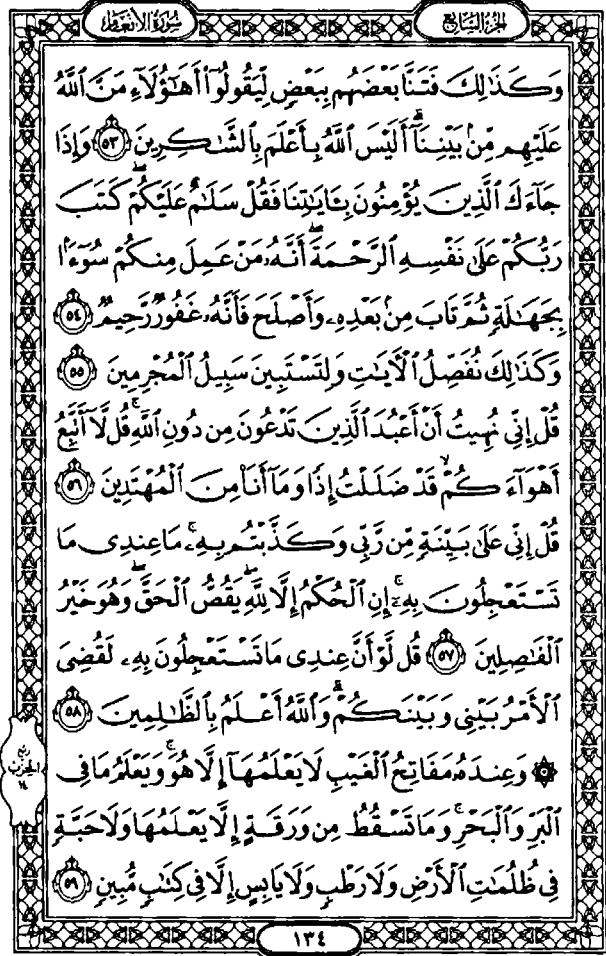 سُورَةُ الأَنعَامِ
الجُزْءُ السَّابِعُ
وَكَذَٰلِكَ فَتَنَّا بَعْضَهُم بِبَعْضٍ لِّيَقُولُوٓا۟ أَهَـٰٓؤُلَآءِ مَنَّ ٱللَّهُ
عَلَيْهِم مِّنۢ بَيْنِنَآ ۗ أَلَيْسَ ٱللَّهُ بِأَعْلَمَ بِٱلشَّـٰكِرِينَ ٥٣ وَإِذَا
جَآءَكَ ٱلَّذِينَ يُؤْمِنُونَ بِـَٔايَـٰتِنَا فَقُلْ سَلَـٰمٌ عَلَيْكُمْ ۖ كَتَبَ
رَبُّكُمْ عَلَىٰ نَفْسِهِ ٱلرَّحْمَةَ ۖ أَنَّهُۥ مَنْ عَمِلَ مِنكُمْ سُوٓءًۢا
بِجَهَـٰلَةٍ ثُمَّ تَابَ مِنۢ بَعْدِهِۦ وَأَصْلَحَ فَأَنَّهُۥ غَفُورٌ رَّحِيمٌ ٥٤
وَكَذَٰلِكَ نُفَصِّلُ ٱلْـَٔايَـٰتِ وَلِتَسْتَبِينَ سَبِيلُ ٱلْمُجْرِمِينَ ٥٥
قُلْ إِنِّى نُهِيتُ أَنْ أَعْبُدَ ٱلَّذِينَ تَدْعُونَ مِن دُونِ ٱللَّهِ ۚ قُل لَّآ أَتَّبِعُ
أَهْوَآءَكُمْ ۙ قَدْ ضَلَلْتُ إِذًا وَمَآ أَنَا۠ مِنَ ٱلْمُهْتَدِينَ ٥٦
قُلْ إِنِّى عَلَىٰ بَيِّنَةٍ مِّن رَّبِّى وَكَذَّبْتُم بِهِۦ ۚ مَا عِندِى مَا
تَسْتَعْجِلُونَ بِهِۦٓ ۚ إِنِ ٱلْحُكْمُ إِلَّا لِلَّهِ ۖ يَقُصُّ ٱلْحَقَّ ۖ وَهُوَ خَيْرُ
ٱلْفَـٰصِلِينَ ٥٧ قُل لَّوْ أَنَّ عِندِى مَا تَسْتَعْجِلُونَ بِهِۦ لَقُضِىَ
ٱلْأَمْرُ بَيْنِى وَبَيْنَكُمْ ۗ وَٱللَّهُ أَعْلَمُ بِٱلظَّـٰلِمِينَ ٥٨
۞ وَعِندَهُۥ مَفَاتِحُ ٱلْغَيْبِ لَا يَعْلَمُهَآ إِلَّا هُوَ ۚ وَيَعْلَمُ مَا فِى
ٱلْبَرِّ وَٱلْبَحْرِ ۚ وَمَا تَسْقُطُ مِن وَرَقَةٍ إِلَّا يَعْلَمُهَا وَلَا حَبَّةٍ
فِى ظُلُمَـٰتِ ٱلْأَرْضِ وَلَا رَطْبٍ وَلَا يَابِسٍ إِلَّا فِى كِتَـٰبٍ مُّبِينٍ ٥٩
ربع
الحزب
١٤
١٣٤